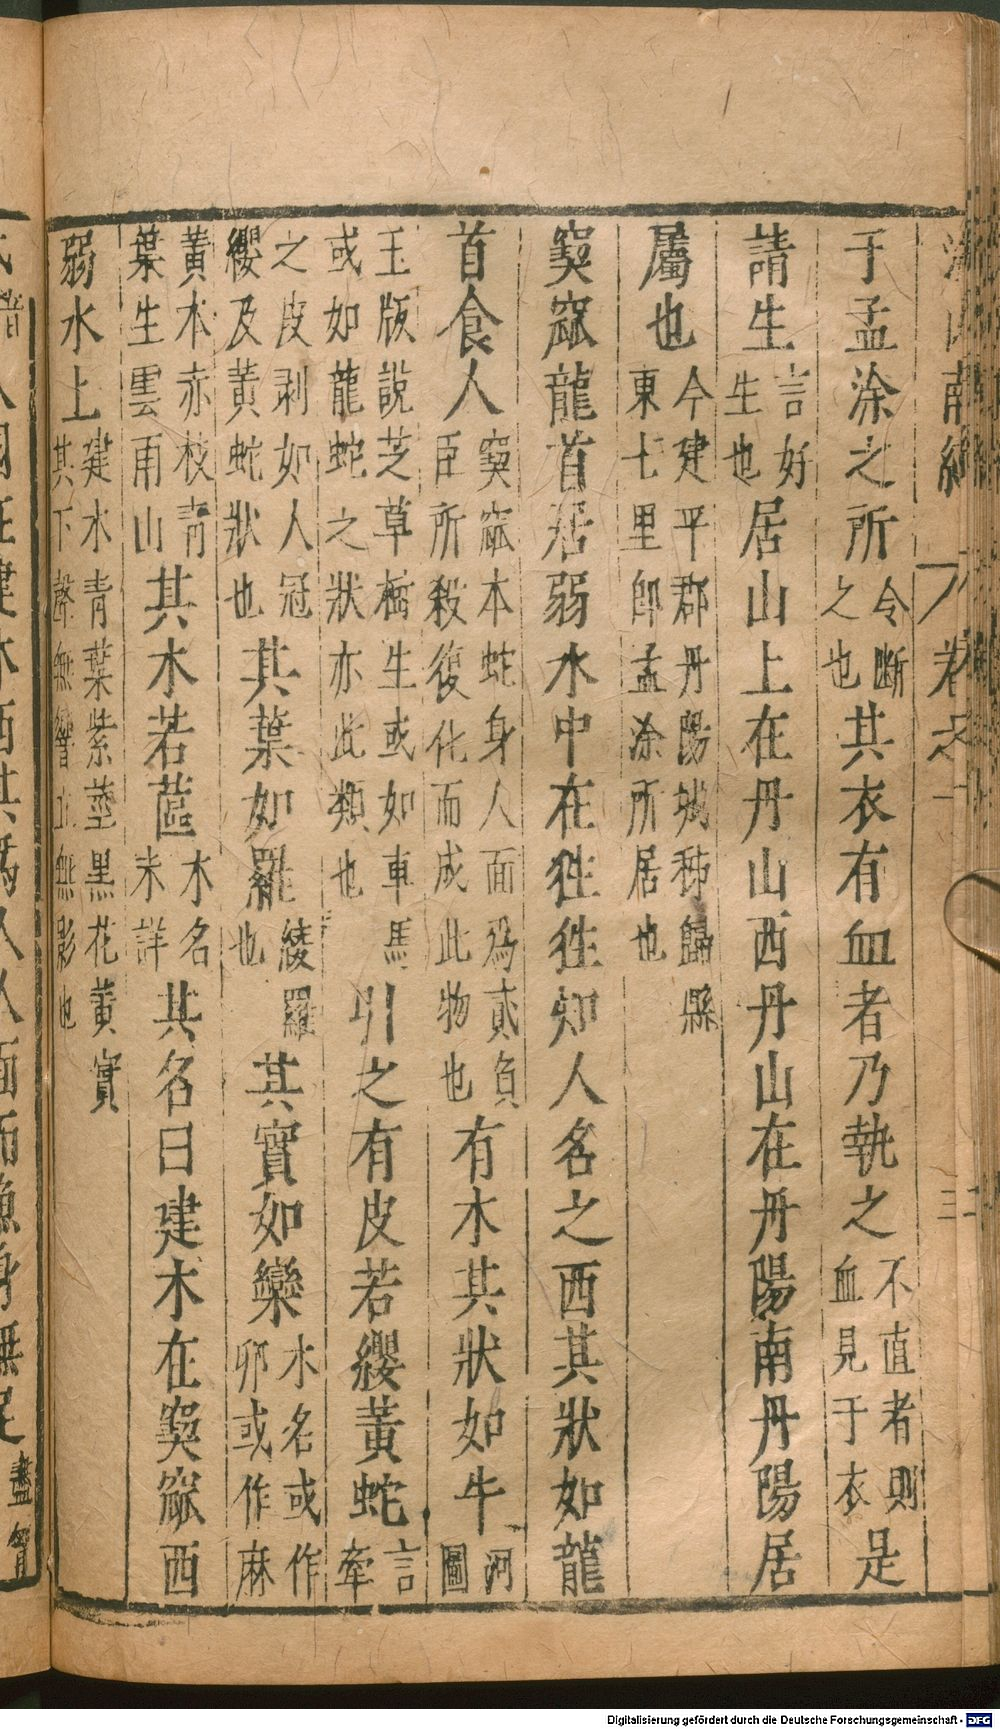 于孟涂之所令断之也其衣有血者乃執之不直者則血見于衣是
請生言好生也居山上在丹山西丹山在丹陽南丹陽居
屬也今建平郡丹陽城秭歸縣東七里即孟涂所居也
窫窳龍首居弱水中在狌狌知人名之西其狀如龍
首食人窫窳本蛇身人面為貳負臣所殺復化而成此物也有木其狀如牛河圖
玉版說芝草樹生或如車馬或如龍蛇之狀亦此類也引之有皮若纓黃蛇言牽
之皮剥如人冠纓及黃蛇狀也其葉如羅綾羅也其實如欒木名或作卵或作麻
黃本赤枝青葉生雲雨山其木若蓲木名未詳其名曰建木在窫窳西
弱水上建木青葉紫莖黑花黃實其下聲無響立無影也
Digitalisierung gefördert durch die Deutsche Forschungsgemeinschaft - DFG